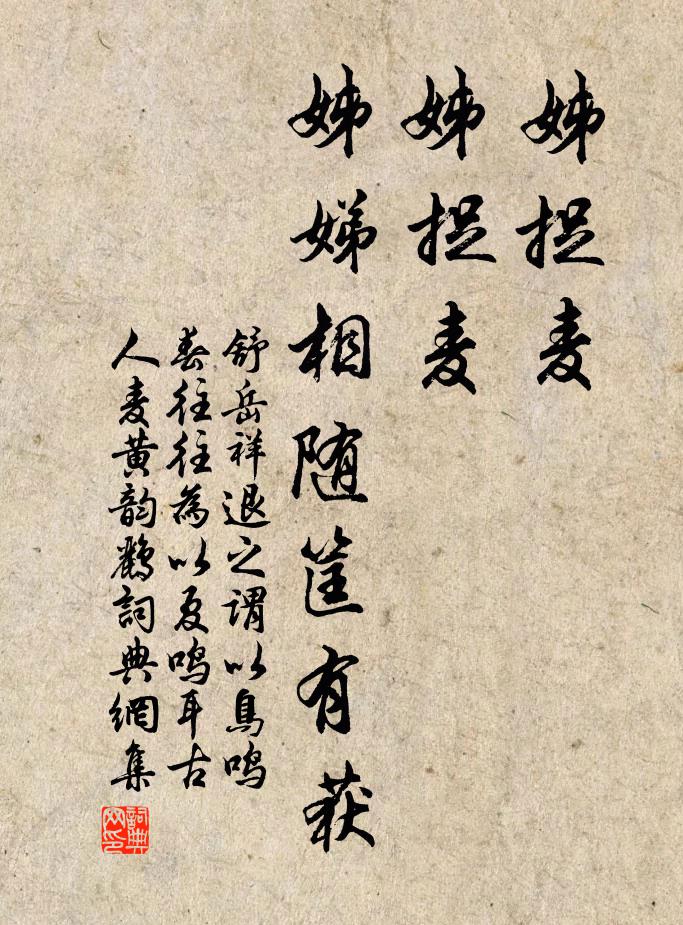 姊捉麦
姊捉麦
姊娣相随筐有获
舒岳祥退之谓以鳥鸣
春往往為以夏鸣耳古
人麦黄韵鹳詞典網集
詞典网印